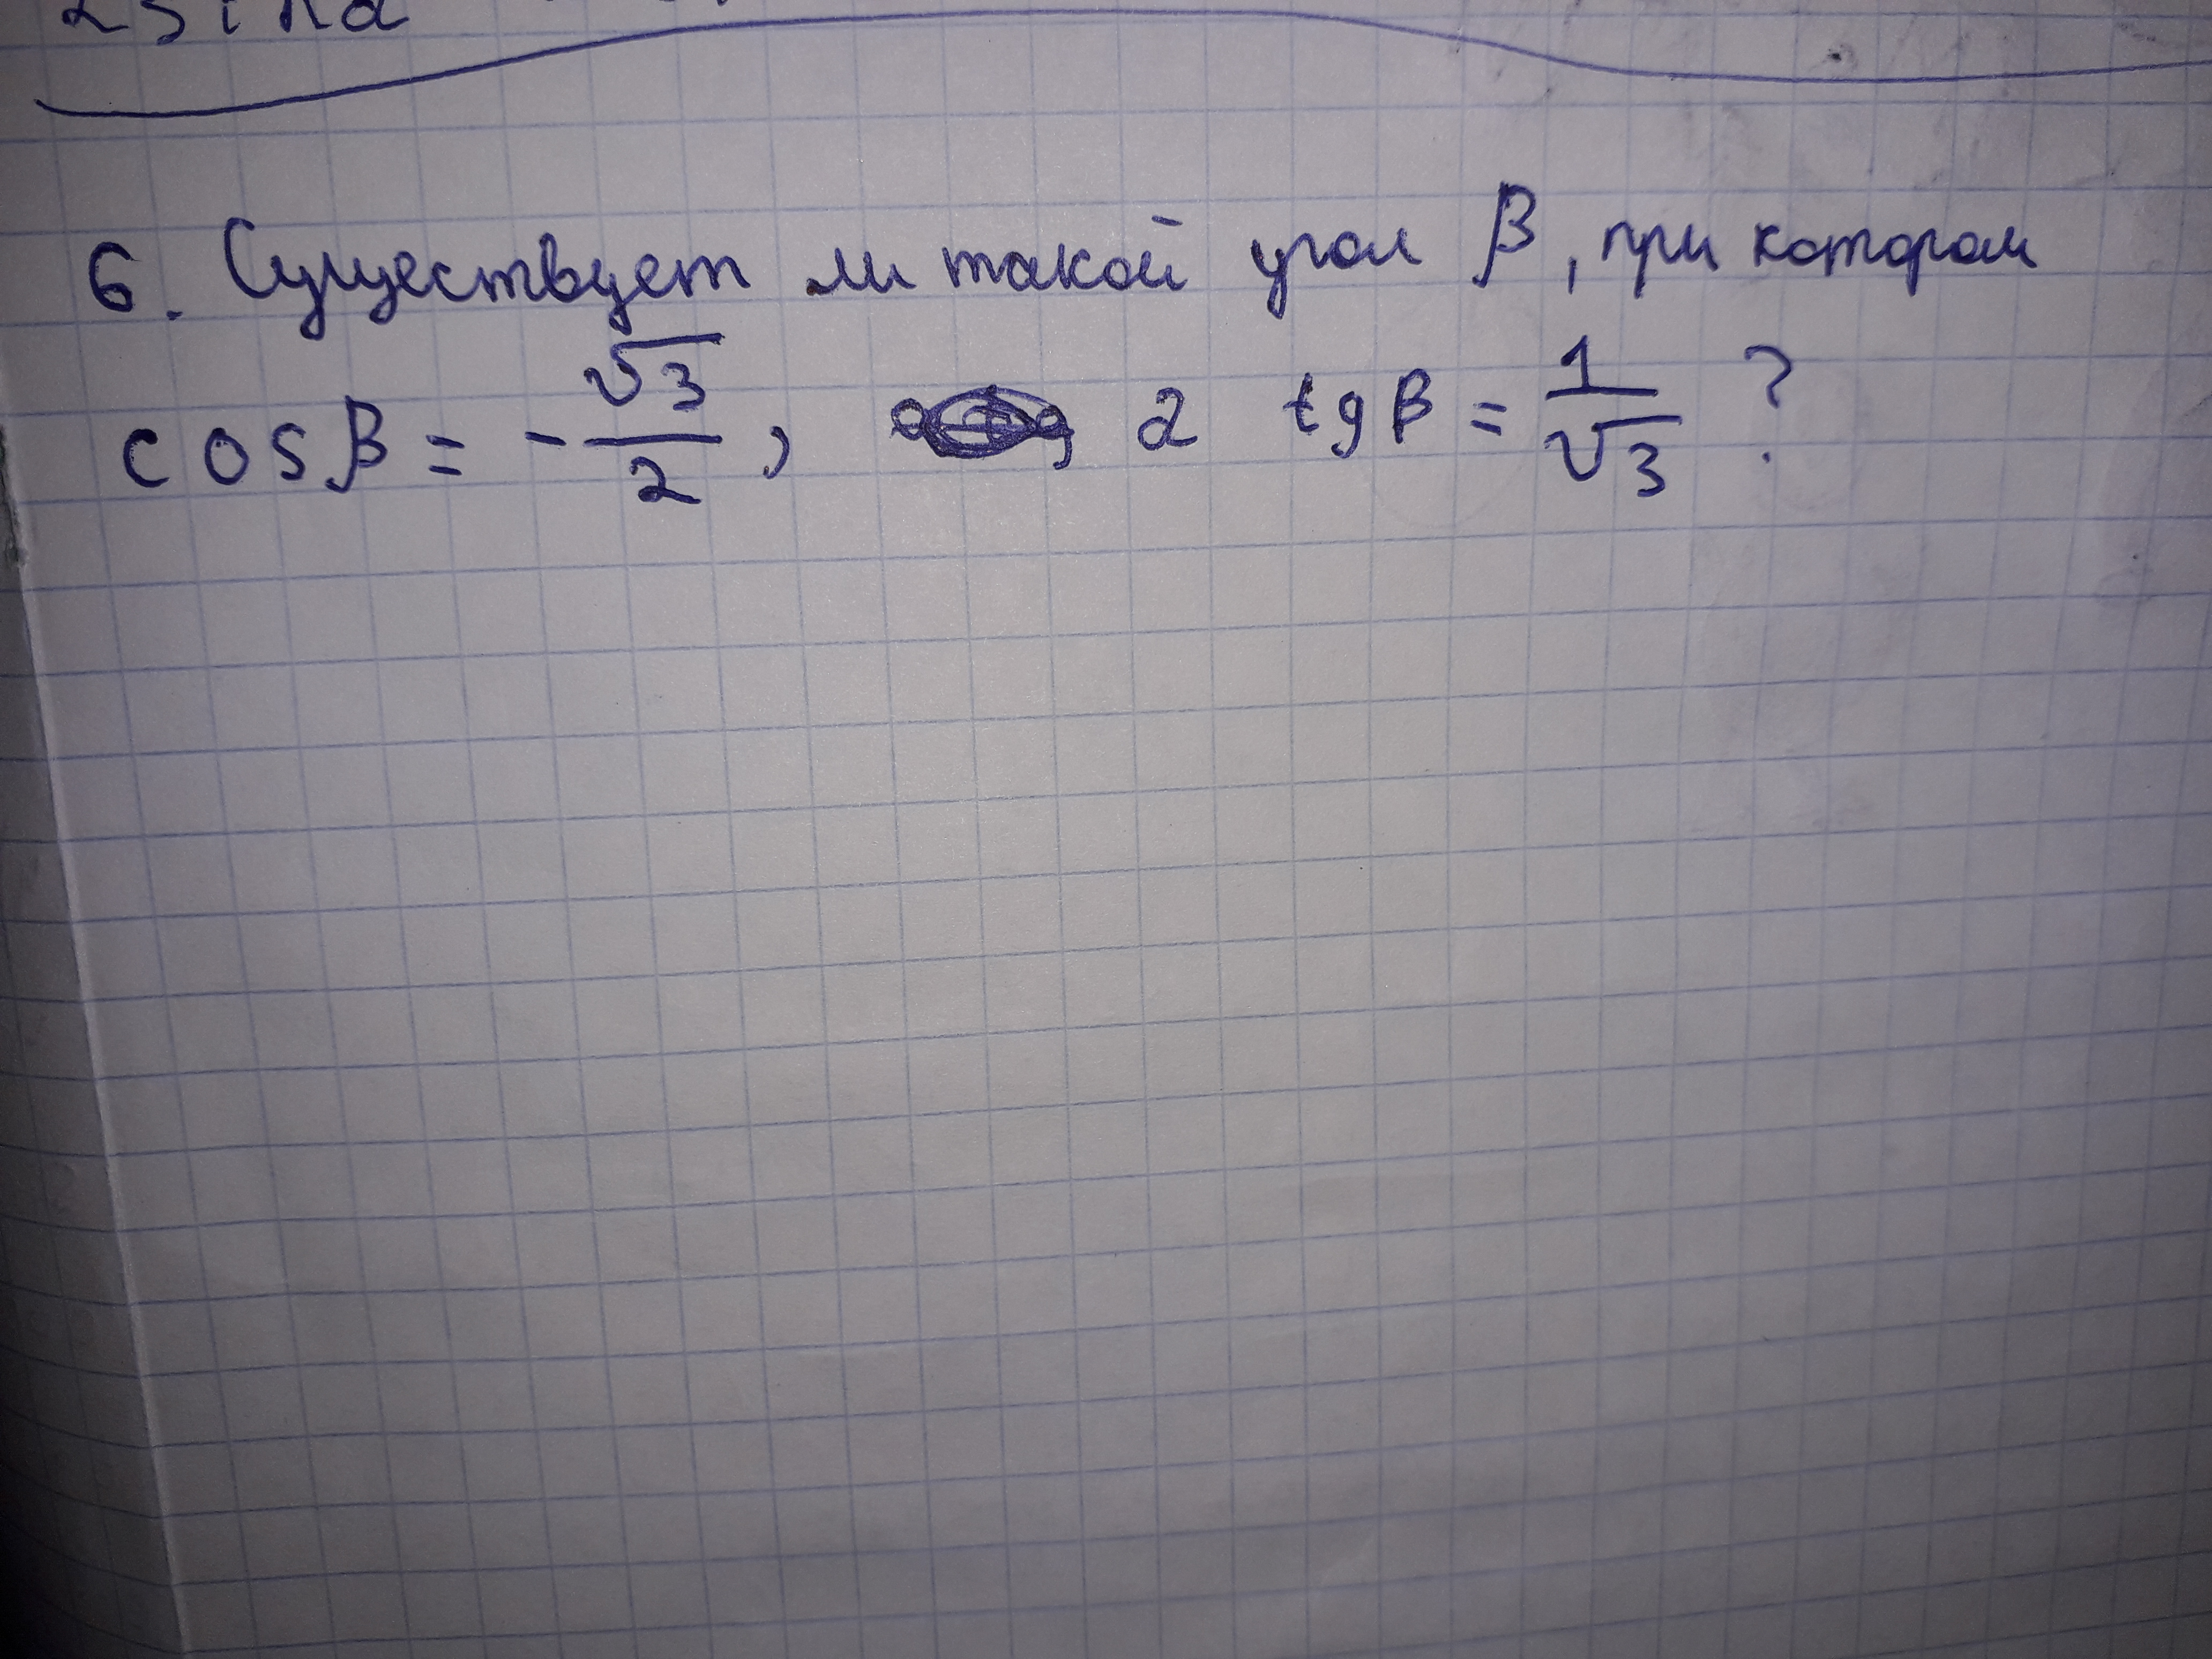 6. Существует ли такой угол β, при котором
cosβ = -√3/2, а tgβ = 1/√3 ?